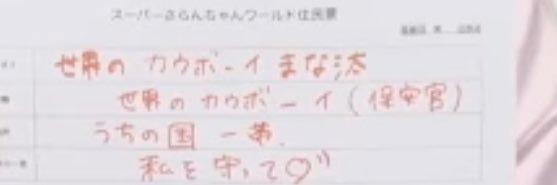 スーパーさらんちゃんワールド住民票
世界の カウボーイ まな汰
世界の カウボーイ (保安官)
うちの国 一番.
私を 守って♡"